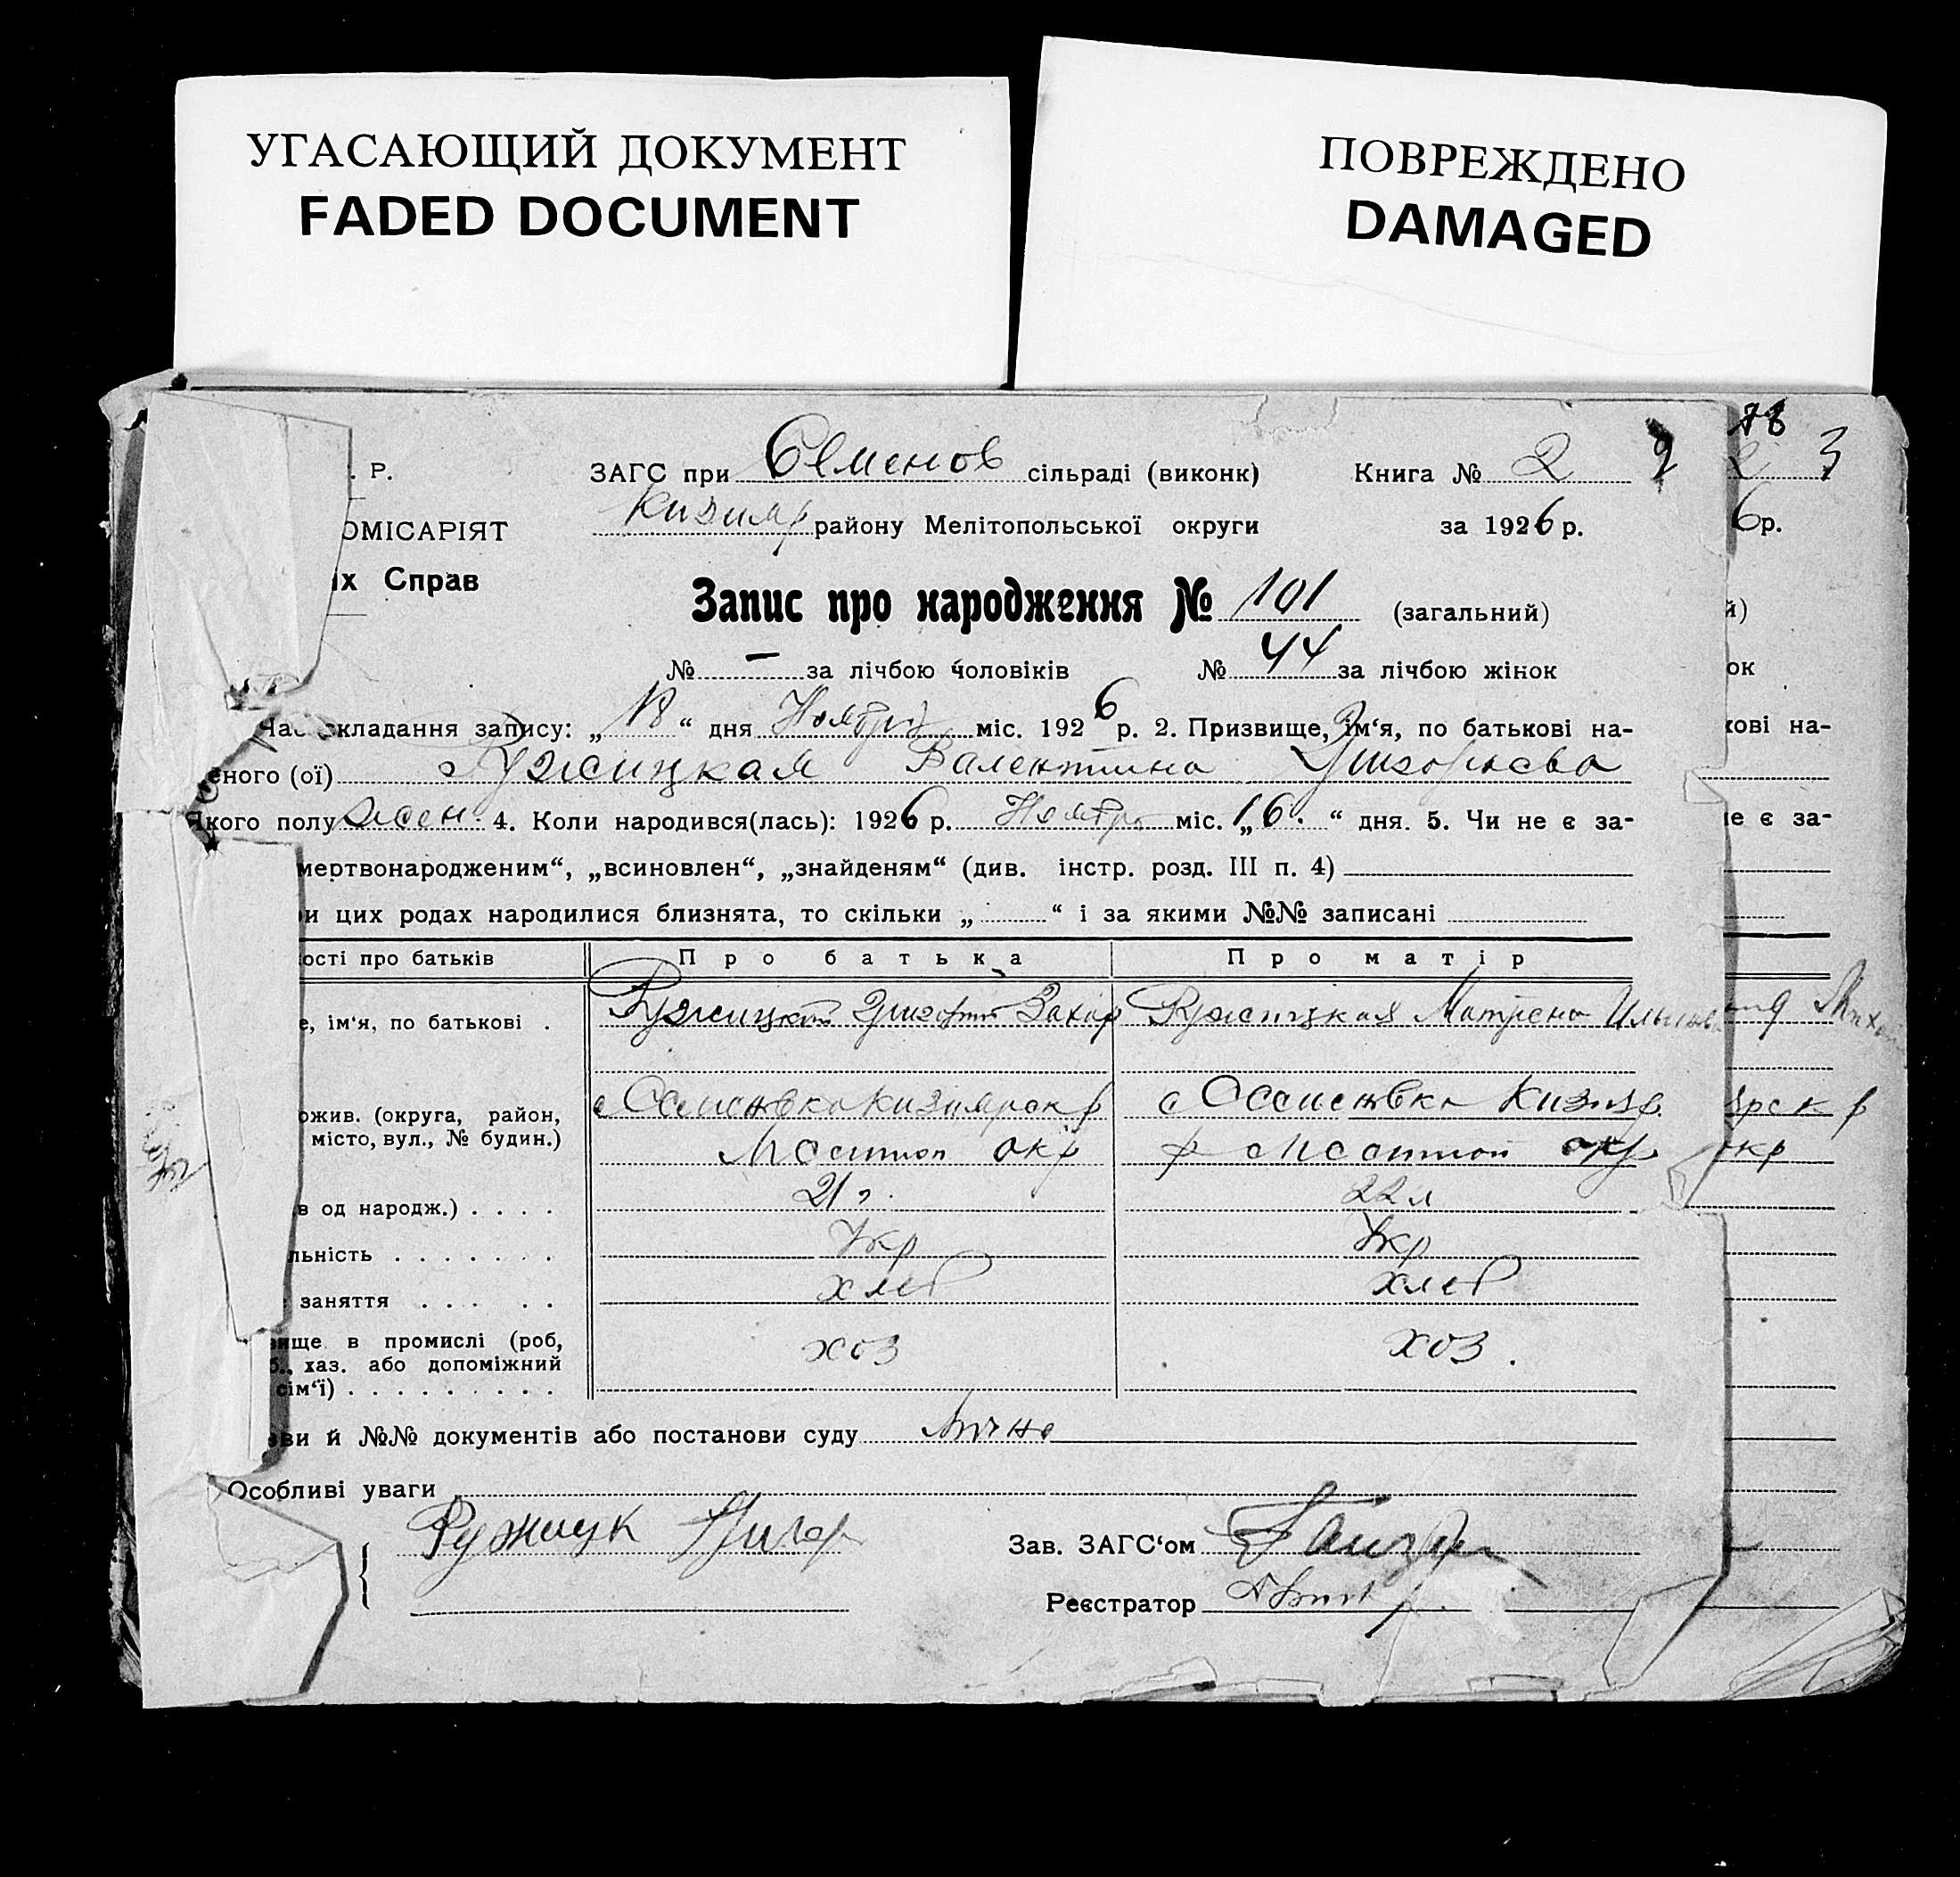 УГАСАЮЩИЙ ДОКУМЕНТ
FADED DOCUMENT
ПОВРЕЖДЕНО
DAMAGED
78
. Р. ЗАГС при Семенов сільраді (виконк) Книга № 2 2
2 3
ОМІСАРІЯТ Кизияр району Мелітопольської округи за 1926 р.
6р.
іх Справ
Запис про народження № 101 (загальний)
й)
№ — за лічбою чоловіків № 44 за лічбою жінок
ок
Час складання запису: „18“ дня Ноября міс. 1926 р. 2. Призвище, ім‘я, по батькові на-
кові на-
еного (ої) Ружицкая Валентина Григорьева
Якого полу жен. 4. Коли народився(лась): 1926 р. Ноября міс. „16.“ дня. 5. Чи не є за-
не є за-
мертвонародженим“, „всиновлен“, „знайденям“ (див. інстр. розд. III п. 4)
ри цих родах народилися близнята, то скільки „ “ і за якими №№ записані
ості про батьків Про батька Про матір
е, ім‘я, по батькові . Ружицкой Григорий Захар Ружицкая Матрена Ильинов
ожив. (округа, район, с Семеновка Кизиярск р с Семеновка Кизияр.
ярск р
місто, вул., № будин.) Мелитоп окр р Мелитоп окр
окр
в од народж.) . . . . 21 г. 22 л
льність . . . . . . . Укр Укр
заняття . . . . . хлеб хлеб
вище в промислі (роб, хоз хоз.
б., хаз. або допоміжний
сім‘ї) . . . . . . . . .
ви й №№ документів або постанови суду Лично
Особливі уваги
Ружицк Григор Зав. ЗАГС‘ом
Реєстратор